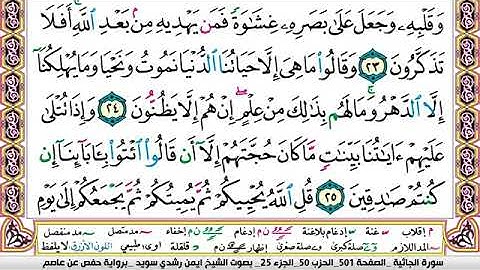 وَقَلْبِهِۦ وَجَعَلَ عَلَىٰ بَصَرِهِۦ غِشَٰوَةً فَمَن يَهْدِيهِ مِنۢ بَعْدِ ٱللَّهِ ۚ أَفَلَا
تَذَكَّرُونَ ٢٣ وَقَالُوا۟ مَا هِىَ إِلَّا حَيَاتُنَا ٱلدُّنْيَا نَمُوتُ وَنَحْيَا وَمَا يُهْلِكُنَآ
إِلَّا ٱلدَّهْرُ ۚ وَمَا لَهُم بِذَٰلِكَ مِنْ عِلْمٍ ۖ إِنْ هُمْ إِلَّا يَظُنُّونَ ٢٤ وَإِذَا تُتْلَىٰ
عَلَيْهِمْ ءَايَٰتُنَا بَيِّنَٰتٍ مَّا كَانَ حُجَّتَهُمْ إِلَّآ أَن قَالُوا۟ ٱئْتُوا۟ بِـَٔابَآئِنَآ إِن
كُنتُمْ صَٰدِقِينَ ٢٥ قُلِ ٱللَّهُ يُحْيِيكُمْ ثُمَّ يُمِيتُكُمْ ثُمَّ يَجْمَعُكُمْ إِلَىٰ يَوْمِ
م إقلاب غنة إدغام بلاغنة ن م إدغام ن م إخفاء مد متصل مد منفصل
المد اللازم صلة كبرى صلة صغرى إظهار ن م قلقلة اوى: طبيعي اللون الأزرق لا يلفظ
سورة الجاثية _ الصفحة 501_ الحزب 50_ الجزء 25 _ بصوت الشيخ ايمن رشدي سويد _ برواية حفص عن عاصم